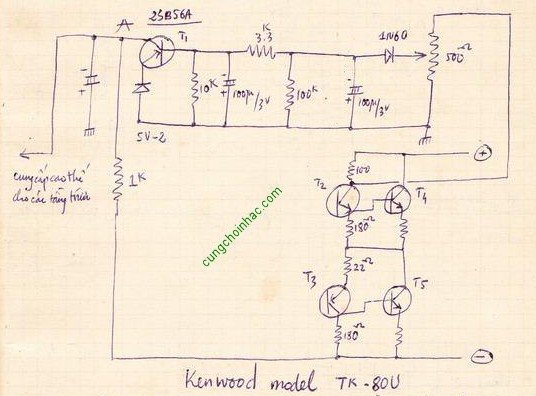 2SB56A
A
T1
K
3.3
1N60
500Ω
10K
100μ/3V
100K
100μ/3V
5V-2
cung cấp cao thế
cho các tầng trước
1K
100
T2
T4
180Ω
22Ω
T3
T5
180Ω
cungchoinhac.com
Kenwood model TK-80U